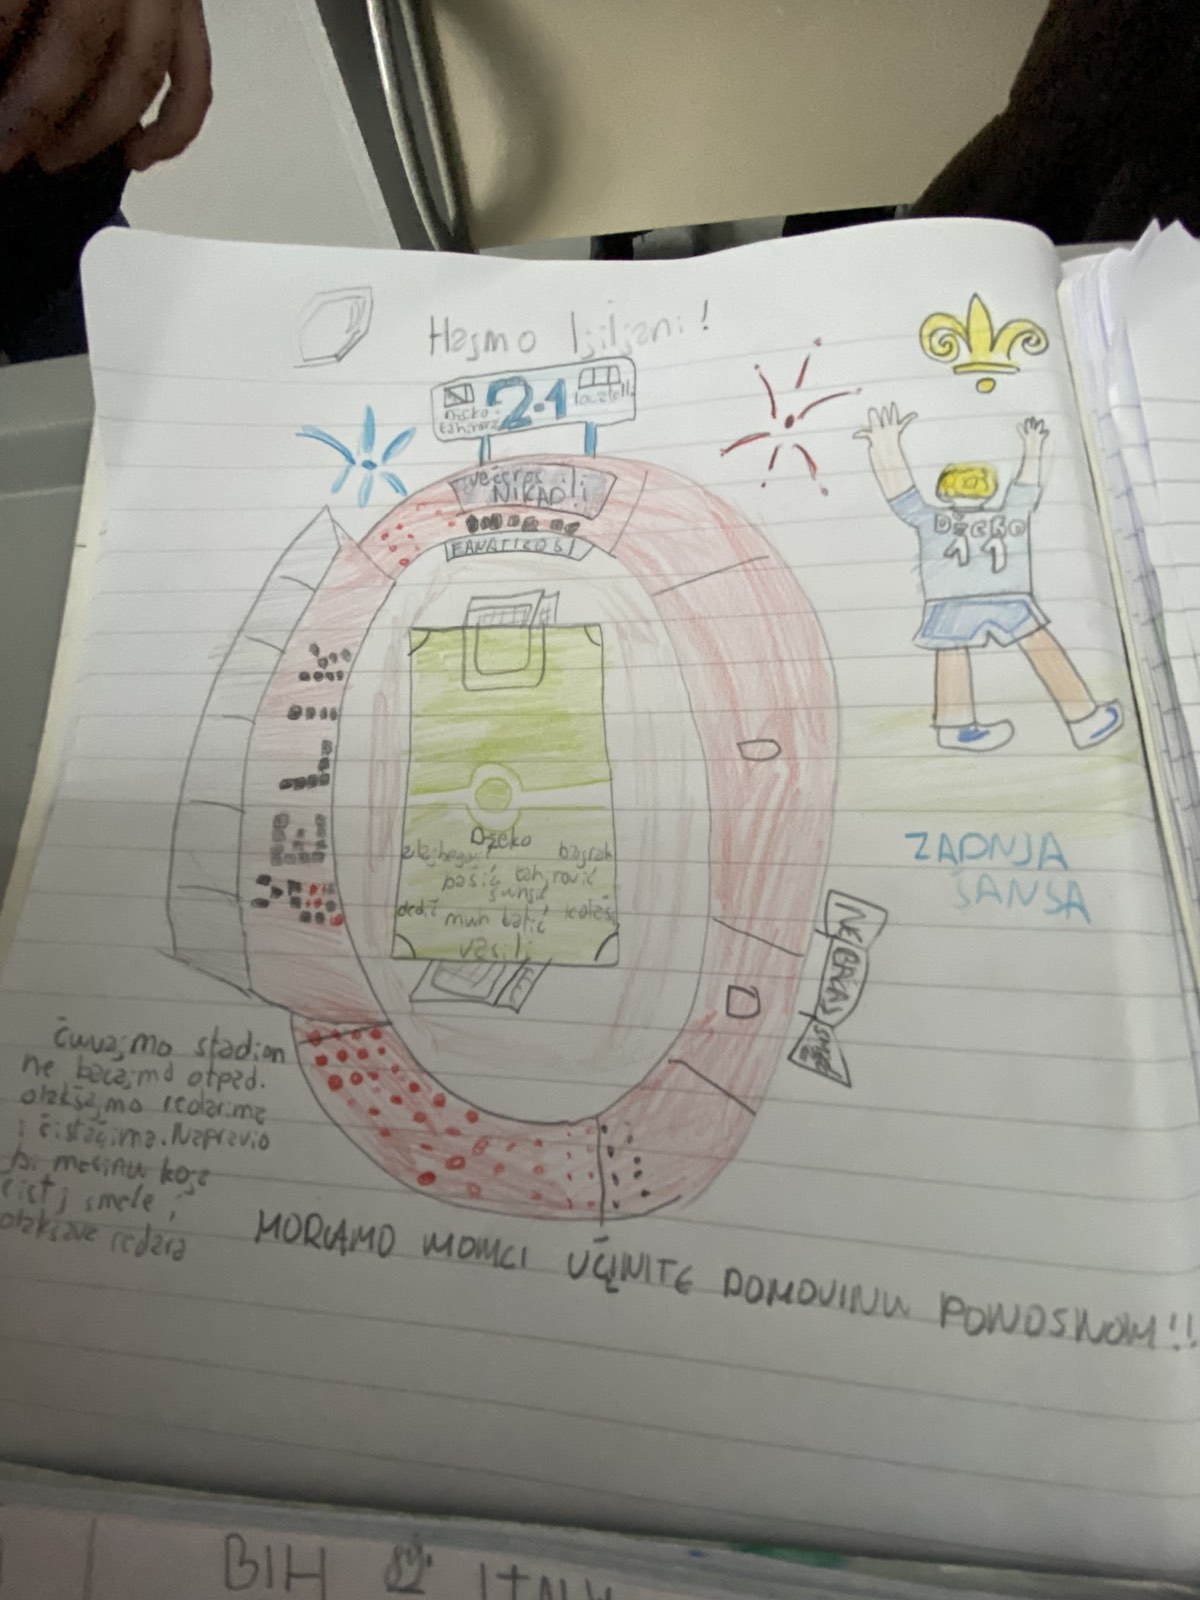 Hajmo ljiljani!
2-1
večeras ili
NIKAD
FANATICOSI
DŽEKO
11
ZADNJA
ŠANSA
Dzeko
alajbegović bajrak
bašić tahirović
šunjić
dedić muh katić kolaš
vasilj
NE BACAJ
SMEĆE
čuvajmo stadion
ne bacajmo otpad.
olakšajmo redarima
i čistačima. Napravio
bi mašinu koja
čisti smeće i
olakšava redara
MORAMO MOMCI UČINITE DOMOVINU PONOSNOM!!
BIH